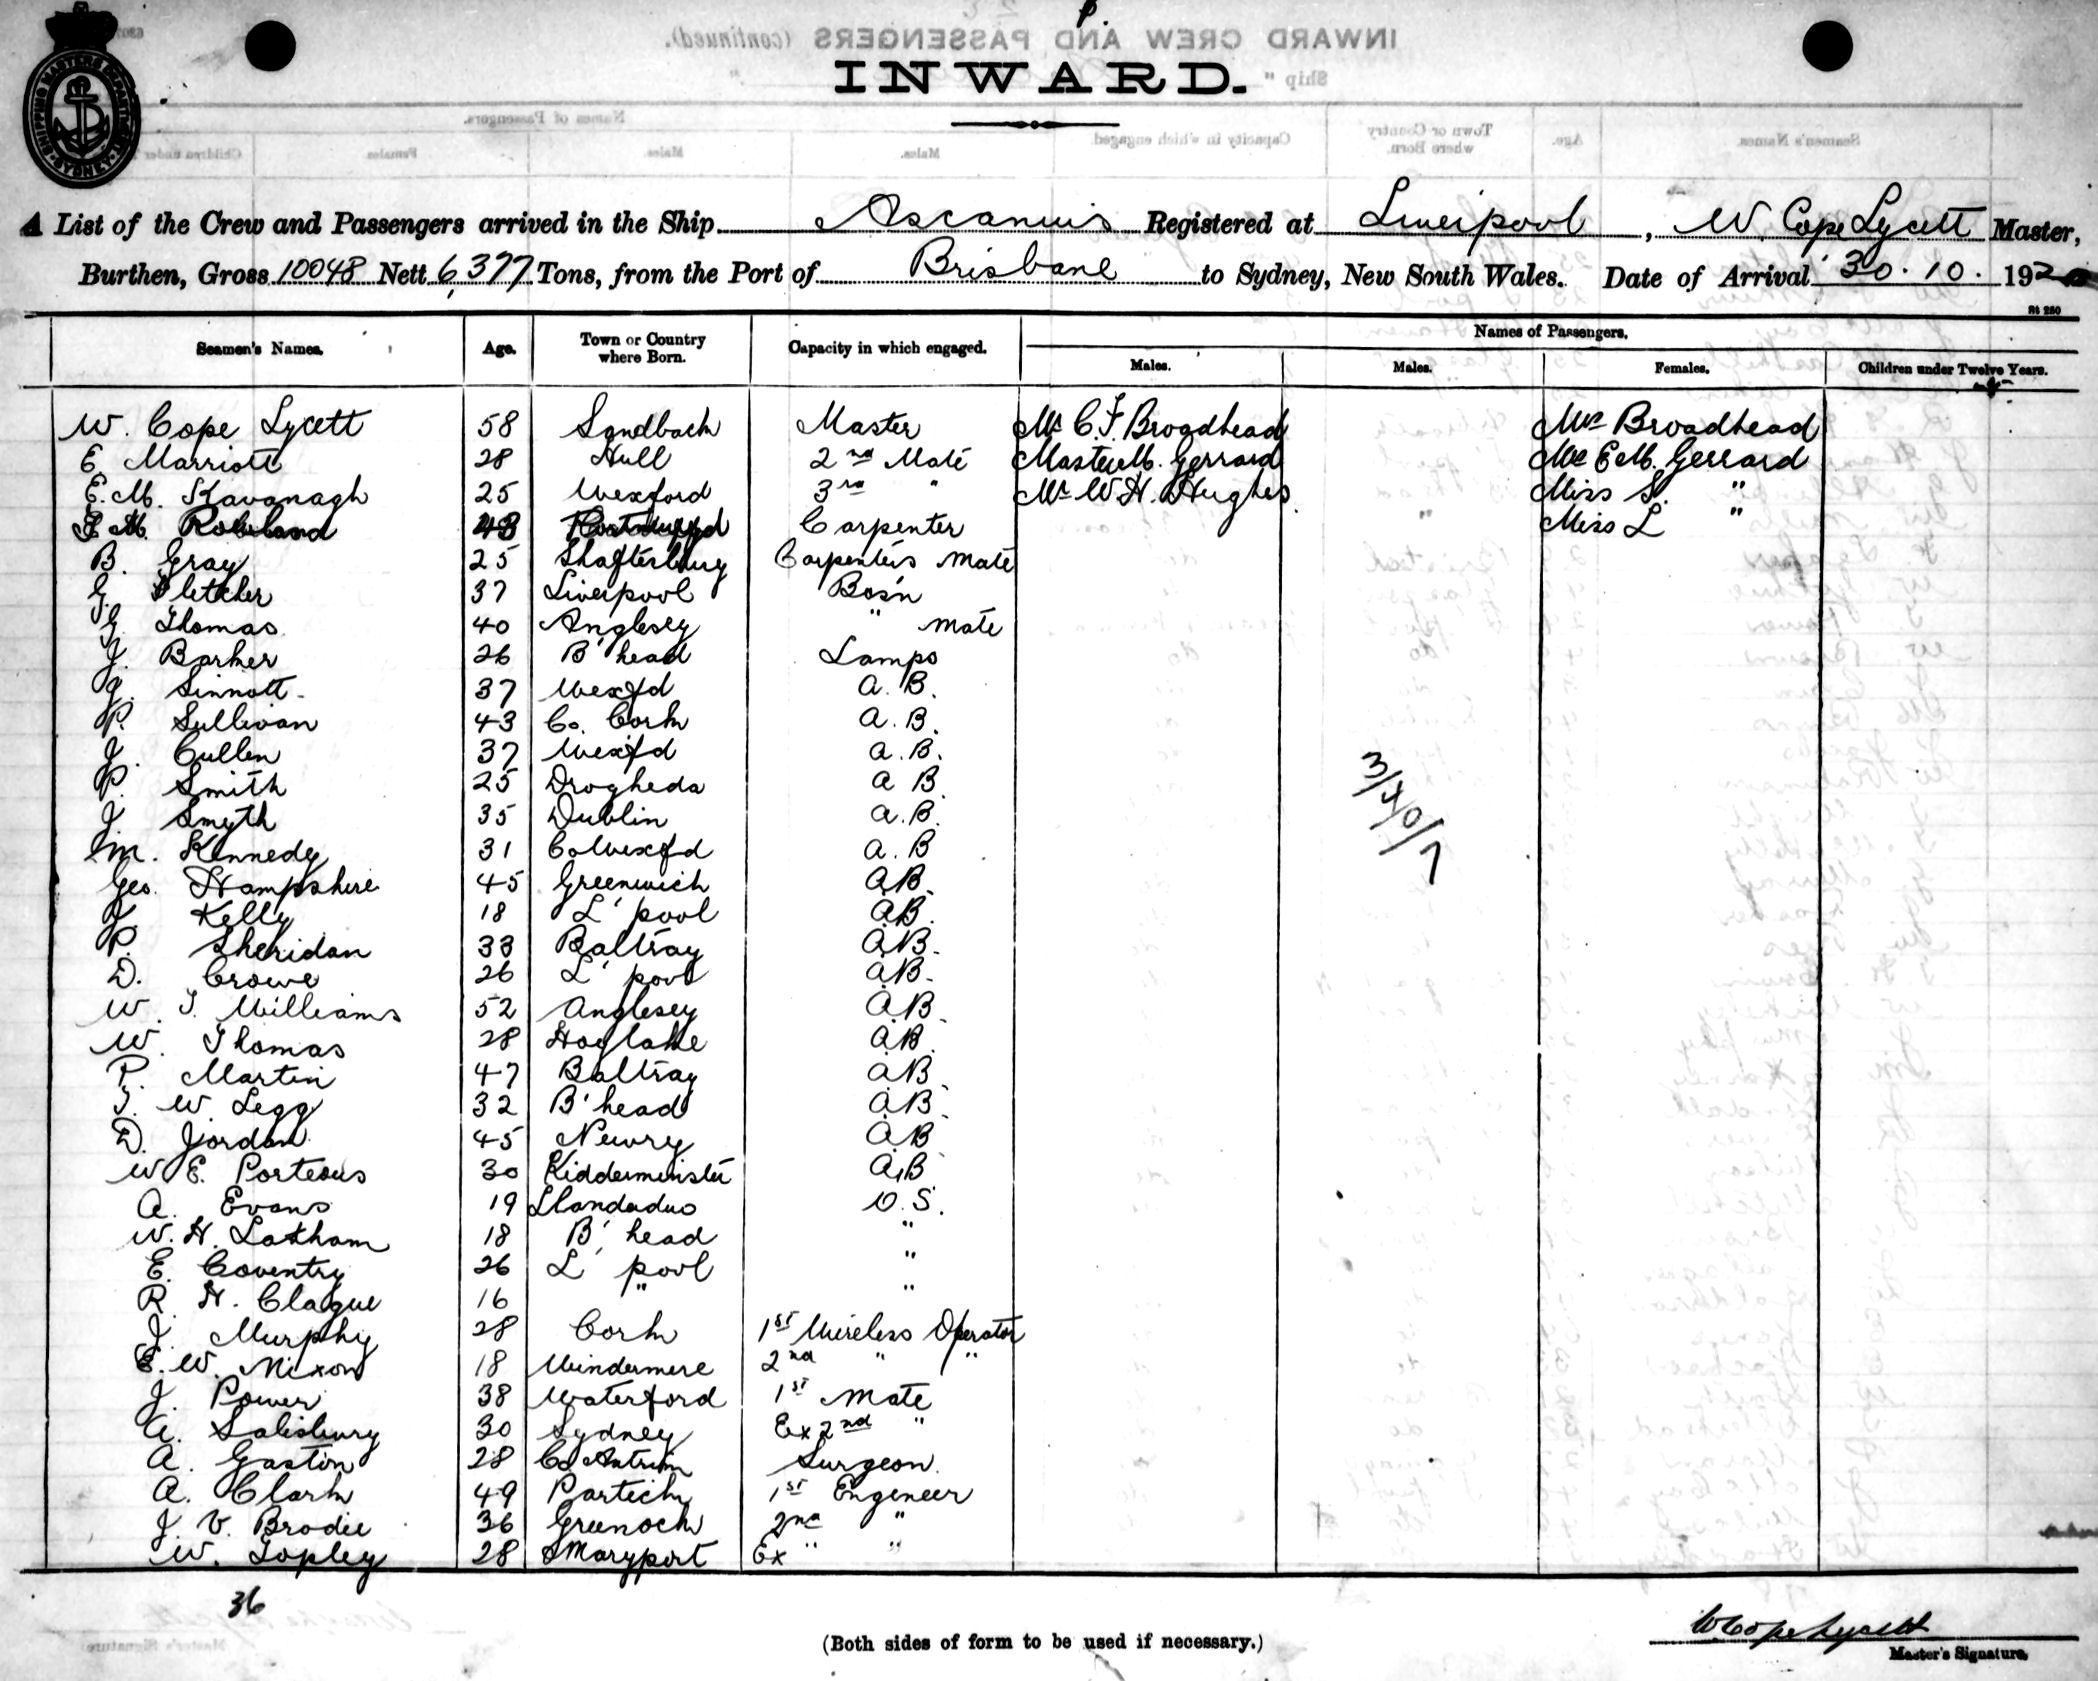 INWARD.
SHIPPING MASTERS DEPARTMENT SYDNEY
A List of the Crew and Passengers arrived in the Ship Ascanius Registered at Liverpool, W. Cope Lycett Master,
Burthen, Gross 10048 Nett 6,377 Tons, from the Port of Brisbane to Sydney, New South Wales. Date of Arrival 30.10.192
St 280
Names of Passengers.
Seamen's Names. Age. Town or Country where Born. Capacity in which engaged. Males. Males. Females. Children under Twelve Years.
W. Cope Lycett 58 Sandbach Master Mr C. F. Broadhead Mrs Broadhead
E. Marriott 28 Hull 2nd Mate Master M. Gerrard Mrs E. M. Gerrard
E. M. Kavanagh 25 Wexford 3rd " Mr W. H. Hughes Miss S. "
Rowland 43 Carpenter Miss L "
B. Gray 25 Shaftesbury Carpenter's Mate
G. Fletcher 37 Liverpool Bosn
G. Thomas 40 Anglesey " mate
J. Barker 26 B'head Lamps
J. Sinnott 37 Wexfd A. B.
P. Sullivan 43 Co. Cork A. B.
J. Cullen 37 Wexfd A. B.
P. Smith 25 Drogheda A B.
J Smyth 35 Dublin A. B.
M. Kennedy 31 Co Wexfd A. B
Geo. Hampshire 45 Greenwich A.B.
J Kelly 18 L'pool A.B.
P. Sheridan 33 Baltray A.B.
D. Crowe 26 L'pool A.B.
W. T. Williams 52 Anglesey A.B.
W. Thomas 28 Hoylake A.B.
P. Martin 47 Baltray A.B.
T. W. Legg 32 B'head A.B.
D. Jordan 45 Newry A.B
W E. Porteous 30 Kidderminster A.B
A. Evans 19 Llandudno O. S.
W. H. Latham 18 B'head "
E. Coventry 26 L'pool "
R. H. Clague 16 " "
J. Murphy 28 Cork 1st Wireless Operator
E. W. Nixon 18 Windermere 2nd " "
J. Power 38 Waterford 1st Mate
A. Salisbury 30 Sydney Ex 2nd "
A. Gaston 28 Co Antrim Surgeon
A. Clark 49 Partick 1st Engineer
J. V. Brodie 36 Greenock 2nd "
W. Topley 28 Maryport Ex " "
3/40/7
36
(Both sides of form to be used if necessary.)
W Cope Lycett
Master's Signature.